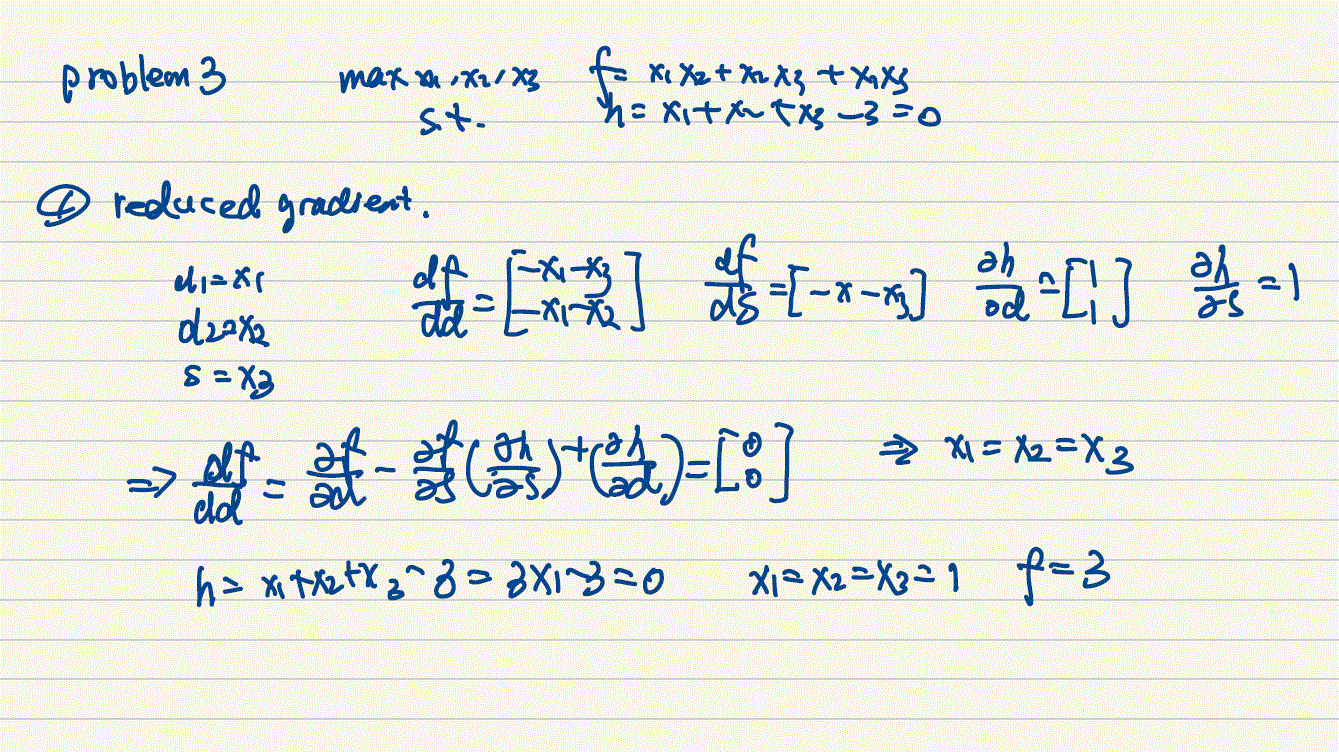 problem 3 max x1, x2, x3 f = x1x2 + x2x3 + x1x3
s.t. h = x1 + x2 + x3 - 3 = 0
① reduced gradient.
d1 = x1 df/dd = [-x1-x3 -x1-x2] df/ds = [-x-x3] ∂h/∂d = [1 1] ∂h/∂s = 1
d2 = x2
s = x3
⇒ df/dd = ∂f/∂d - ∂f/∂s (∂h/∂s)^+ (∂h/∂d) = [0 0] ⇒ x1 = x2 = x3
h = x1 + x2 + x3 - 3 = 3x1 - 3 = 0 x1 = x2 = x3 = 1 f = 3